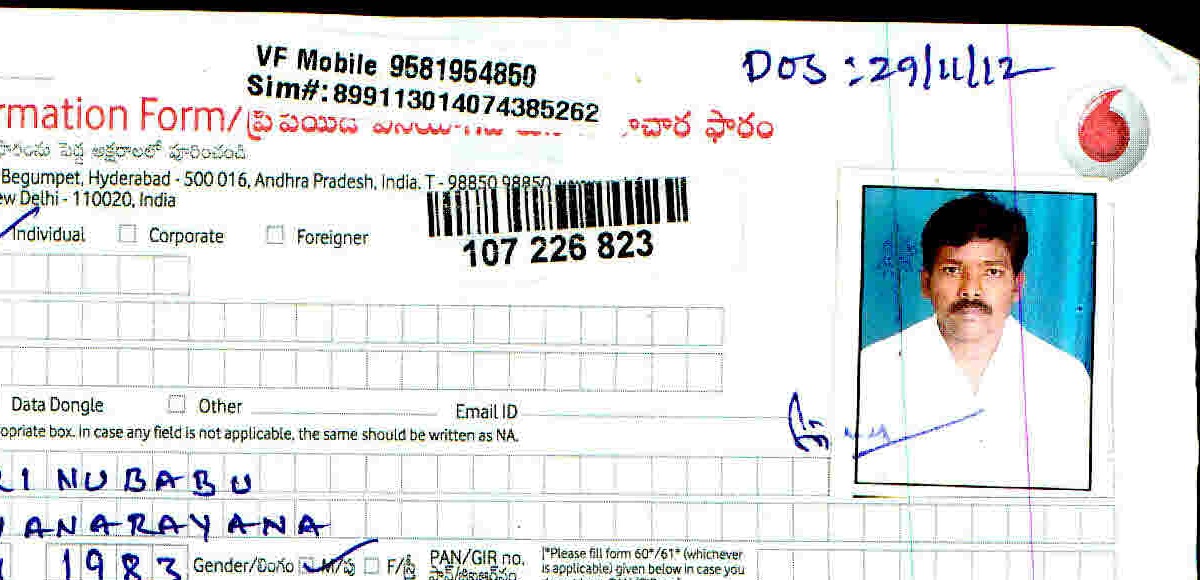 VF Mobile 9581954850
Sim#: 899113014074385262
DOS : 29/11/12
rmation Form/ ప్రిపెయిడ్ ఫారం
ఫారంను పెద్ద అక్షరాలలో పూరించండి.
Begumpet, Hyderabad - 500 016, Andhra Pradesh, India. T - 98850 98850
ew Delhi - 110020, India
Individual Corporate Foreigner
107 226 823
Data Dongle Other Email ID
opriate box. In case any field is not applicable, the same should be written as NA.
INUBABU
ANARAYANA
1983 Gender/లింగం M/పు F/స్త్రీ PAN/GIR no. (*Please fill form 60*/61* (whichever
is applicable) given below in case you